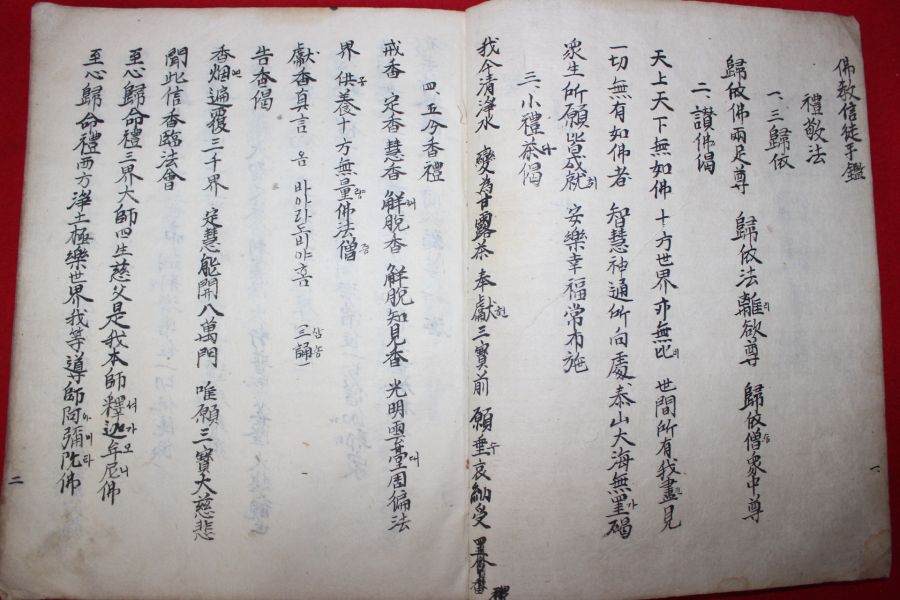 佛教信徒手鑑
禮敬法
一、三歸依
歸依佛兩足尊 歸依法離欲尊 歸依僧衆中尊
二、讚佛偈
天上天下無如佛 十方世界亦無比 世間所有我盡見
一切無有如佛者 智慧神通所向處 泰山大海無罣碍
衆生所願皆成就 安樂幸福常布施
三、小禮茶偈
我今清淨水 變為甘露茶 奉獻三寶前 願垂哀納受
四、五分香禮
戒香 定香 慧香 解脫香 解脫知見香 光明雲臺周徧法
界 供養十方無量佛法僧
獻香真言 옴 바아라도비야훔 三誦
告香偈
香烟遍覆三千界 定慧能開八萬門 唯願三寶大慈悲
聞此信香臨法會
至心歸命禮 三界大師 四生慈父 是我本師 釋迦牟尼佛
至心歸命禮 西方淨土 極樂世界 我等導師 阿彌陀佛
一
二